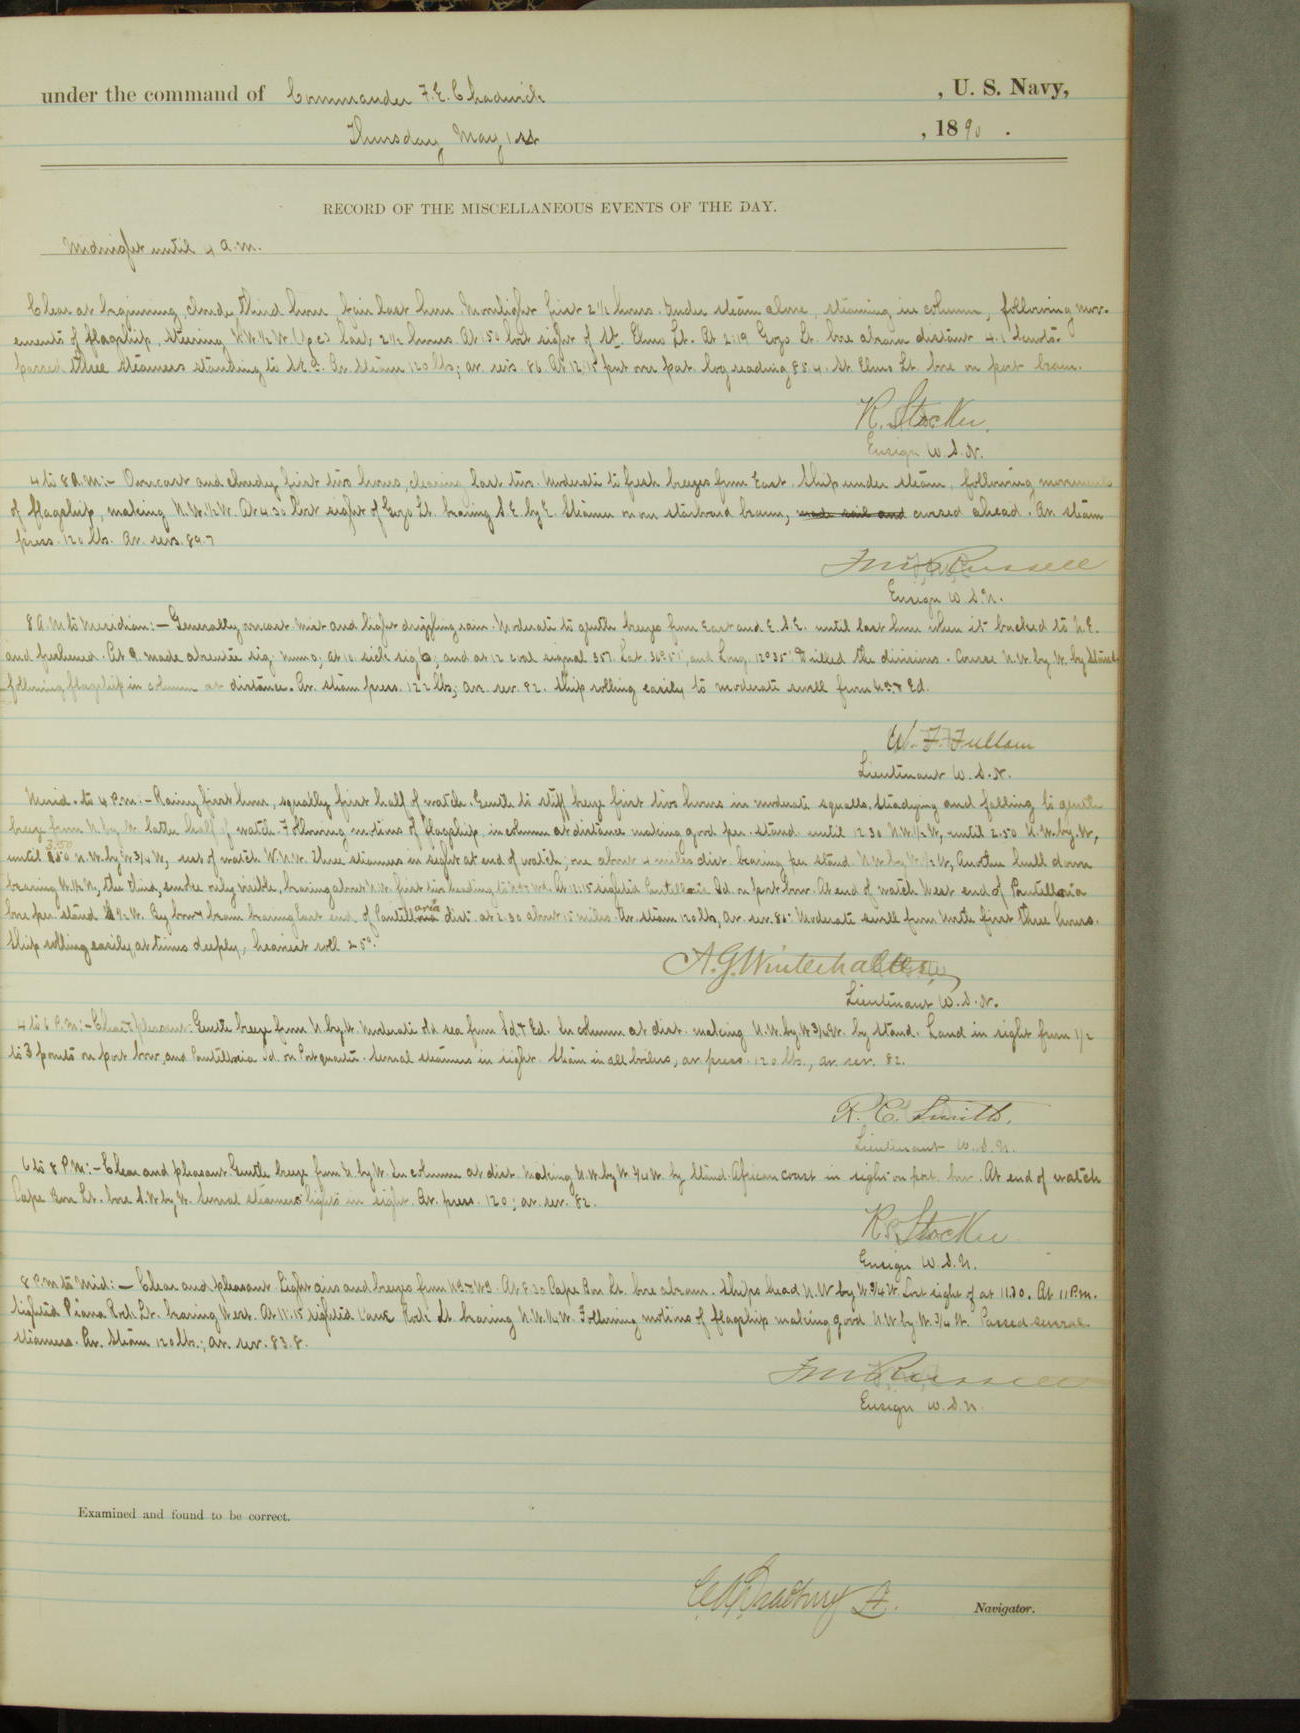 under the command of Commander F. E. Chadwick , U. S. Navy,
Thursday May 1st , 1890 .
RECORD OF THE MISCELLANEOUS EVENTS OF THE DAY.
Midnight until 4 a.m.
Clear at beginning, cloudy third hour, fair last hour. Moonlight first 2½ hours. Under steam alone, steaming in column, following mov-
ements of flagship, steering N.W.½W. (p.c.) last 2½ hours. At 1.50 lost sight of St. Elmo Lt. At 2:19 Gozo Lt. bore abeam distant 4.1
passed three steamers standing to S.E. Av. steam 120 lbs; av. revs. 86. At 12.15 put over pat. log reading 85.4. St. Elmo Lt. bore on port beam.
R. Stocker.
Ensign U.S.N.
4 to 8 A.M:- Overcast and cloudy first two hours, clearing last two. Moderate to fresh breezes from East. Ship under steam, following movements
of flagship, making N.W.½W. At 4.30 lost sight of Gozo Lt. bearing S.E. by E. Steamer on starboard beam, made sail and crossed ahead. Av. steam
press. 120 lbs. Av. revs. 89.7
Russell
Ensign U.S.N.
8 A.M. to Meridian:- Generally overcast mist and light drizzling rain. Moderate to gentle breezes from East and E.S.E. until last hour when it backed to N.E.
and freshened. At 9. made absentee sig. at 10. sick sig. and at 12 coal signal 357. Lat. 36°51', and Long. 12°35' Drilled the divisions. Course N.W. by W. by Stand.
following flagship in column at distance. Av. steam press. 122 lbs; av. rev. 82. Ship rolling easily to moderate swell from
W. F. Fullam
Lieutenant U.S.N.
Merid. to 4 P.M.- Rainy first hour, squally first half of watch. Gentle to stiff breeze first two hours in moderate squalls. Steadying and falling to gentle
breeze from N. by W. latter half of watch. Following motions of flagship, in column at distance making good per. stand. until 12.30 N.W.½W, until 2.50 N.W. by W,
until 3.50 N.W. by W ¾ W, rest of watch W.N.W. Three steamers in sight at end of watch, one about 4 miles dist. bearing per stand N.W. by W.½W, Another hull down
bearing the third, smoke only visible, bearing about N.W. first two heading to At 12.15 sighted Pantellaria Id. on port bow. At end of watch West end of Pantellaria
bore per. stand By bow & beam bearing East end of Pantellaria dist. at 2.30 about 15 miles. Av. steam 120 lbs, Av. rev. 85. Moderate swell from North first three hours.
Ship rolling easily, at times deeply, heaviest roll 25°.
A. G. Winterhalter,
Lieutenant U.S.N.
4 to 6 P.M:- Clear & pleasant. Gentle breeze from N. by W. Moderate old sea from Sd & Ed. In column at dist. making N.W. by W ¾ W. by stand. Land in sight from 1/2
to 3 points on port bow, and Pantellaria Id. on Port quarter. Several steamers in sight. Steam in all boilers, av. press. 120 lbs., av. rev. 82.
R. C. Smith.
Lieutenant U.S.N.
6 to 8 P.M:- Clear and pleasant Gentle breeze from N. by W. In column at dist. Making N.W. by W. ¾ W. by stand. African coast in sight on port bow. At end of watch
Cape Bon Lt. bore S.W. by W. Several steamers lights in sight. Av. press. 120; av. rev. 82.
R. Stocker
Ensign U.S.N.
8 P.M. to Mid:- Clear and pleasant. Light airs and breezes from At 8.20 Cape Bon Lt. bore abeam. Ships head N.W by W. ¾ W. Lost sight of at 11.30. At 11 P.M.
sighted Piana Rock Lt. bearing West. At 11.15 sighted Cani Rock Lt. bearing Following motions of flagship making good N.W. by W. ¾ W. Passed several
steamers. Av. Steam 120 lbs.; av. rev. 83.8.
Russell
Ensign U.S.N.
Examined and found to be correct.
Bradbury Lt.
Navigator.